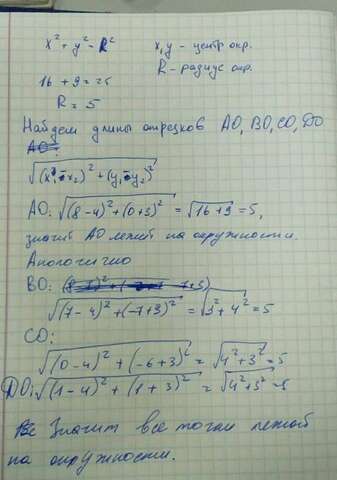 x² + y² = R²
x, y - центр окр.
R - радиус окр.
16 + 9 = 25
R = 5
Найдем длины отрезков AO, BO, CO, DO
√(x₁ - x₂)² + (y₁ - y₂)²
AO: √(8-4)² + (0+3)² = √16+9 = 5,
значит AO лежит на окружности.
Аналогично
BO:
√(7-4)² + (-7+3)² = √3² + 4² = 5
CO:
√(0-4)² + (-6+3)² = √4² + 3² = 5
DO: √(1-4)² + (1+3)² = √4² + 3² = 5
Все Значит все точки лежат
на окружности.